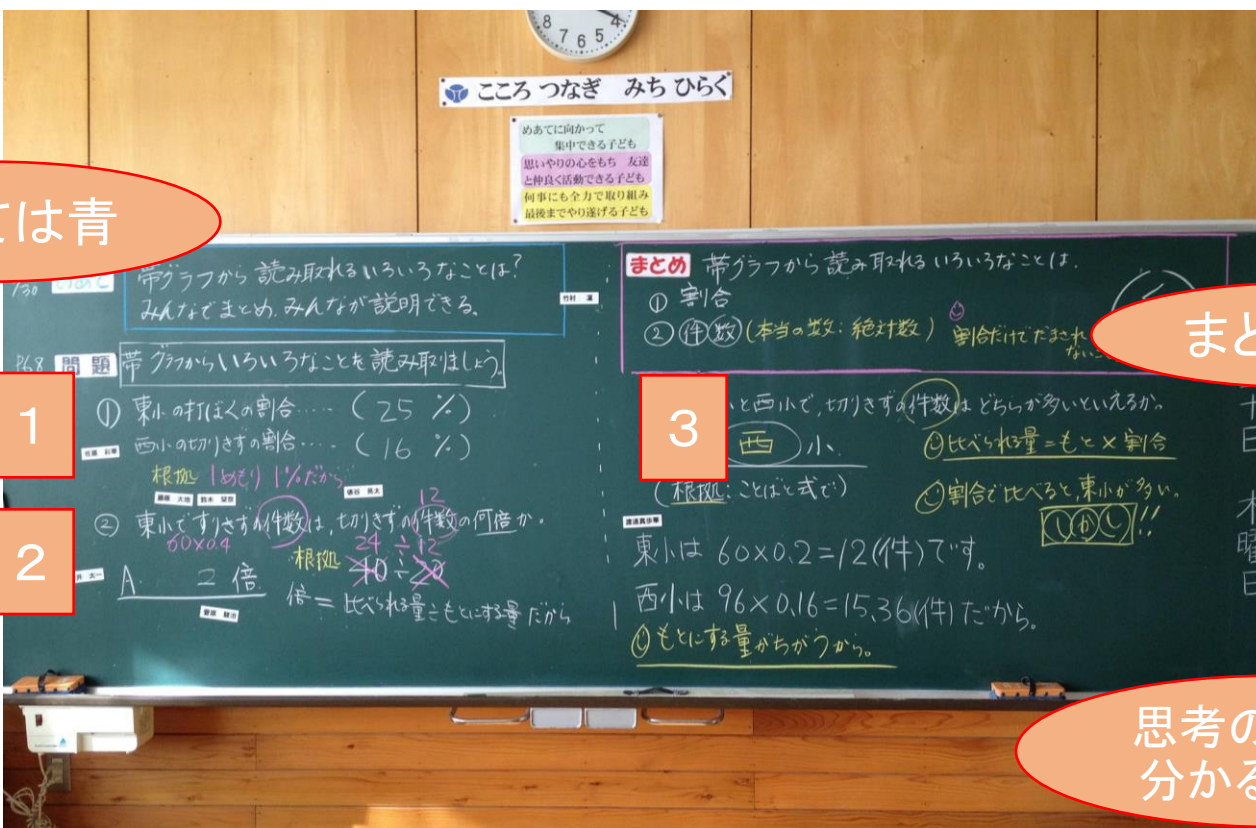 8 7 6 5 4
こころ つなぎ みち ひらく
めあてに向かって
集中できる子ども
思いやりの心をもち 友達
と仲良く活動できる子ども
何事にも全力で取り組み
最後までやり遂げる子ども
ては青
帯グラフから読み取れるいろいろなことは?
みんなでまとめ、みんなが説明できる。
P68 問題 帯グラフからいろいろなことを読み取りましょう。
1
① 東小の打ぼくの割合…‥ (25 %)
西小の切りきずの割合…‥ (16 %)
根拠 1めもり1%だから
2
② 東小ですりきずの件数は、切りきずの件数の何倍か。
60×0.4
12
根拠 24÷12
40÷20
A. 2倍
倍=比べられる量÷もとにする量だから
まとめ 帯グラフから読み取れるいろいろなことは、
① 割合
② 件数(本当の数:絶対数) 割合だけでだまされ
ない
まと
3
と西小で、切りきずの件数はどちらが多いといえるか。
西 小
比べられる量=もと×割合
(根拠:ことばと式で)
割合で比べると、東小が多い。
しかし!!
東小は 60×0.2=12(件)です。
西小は 96×0.16=15.36(件)だから。
もとにする量がちがうから。
木
曜
日
思考の
分かる